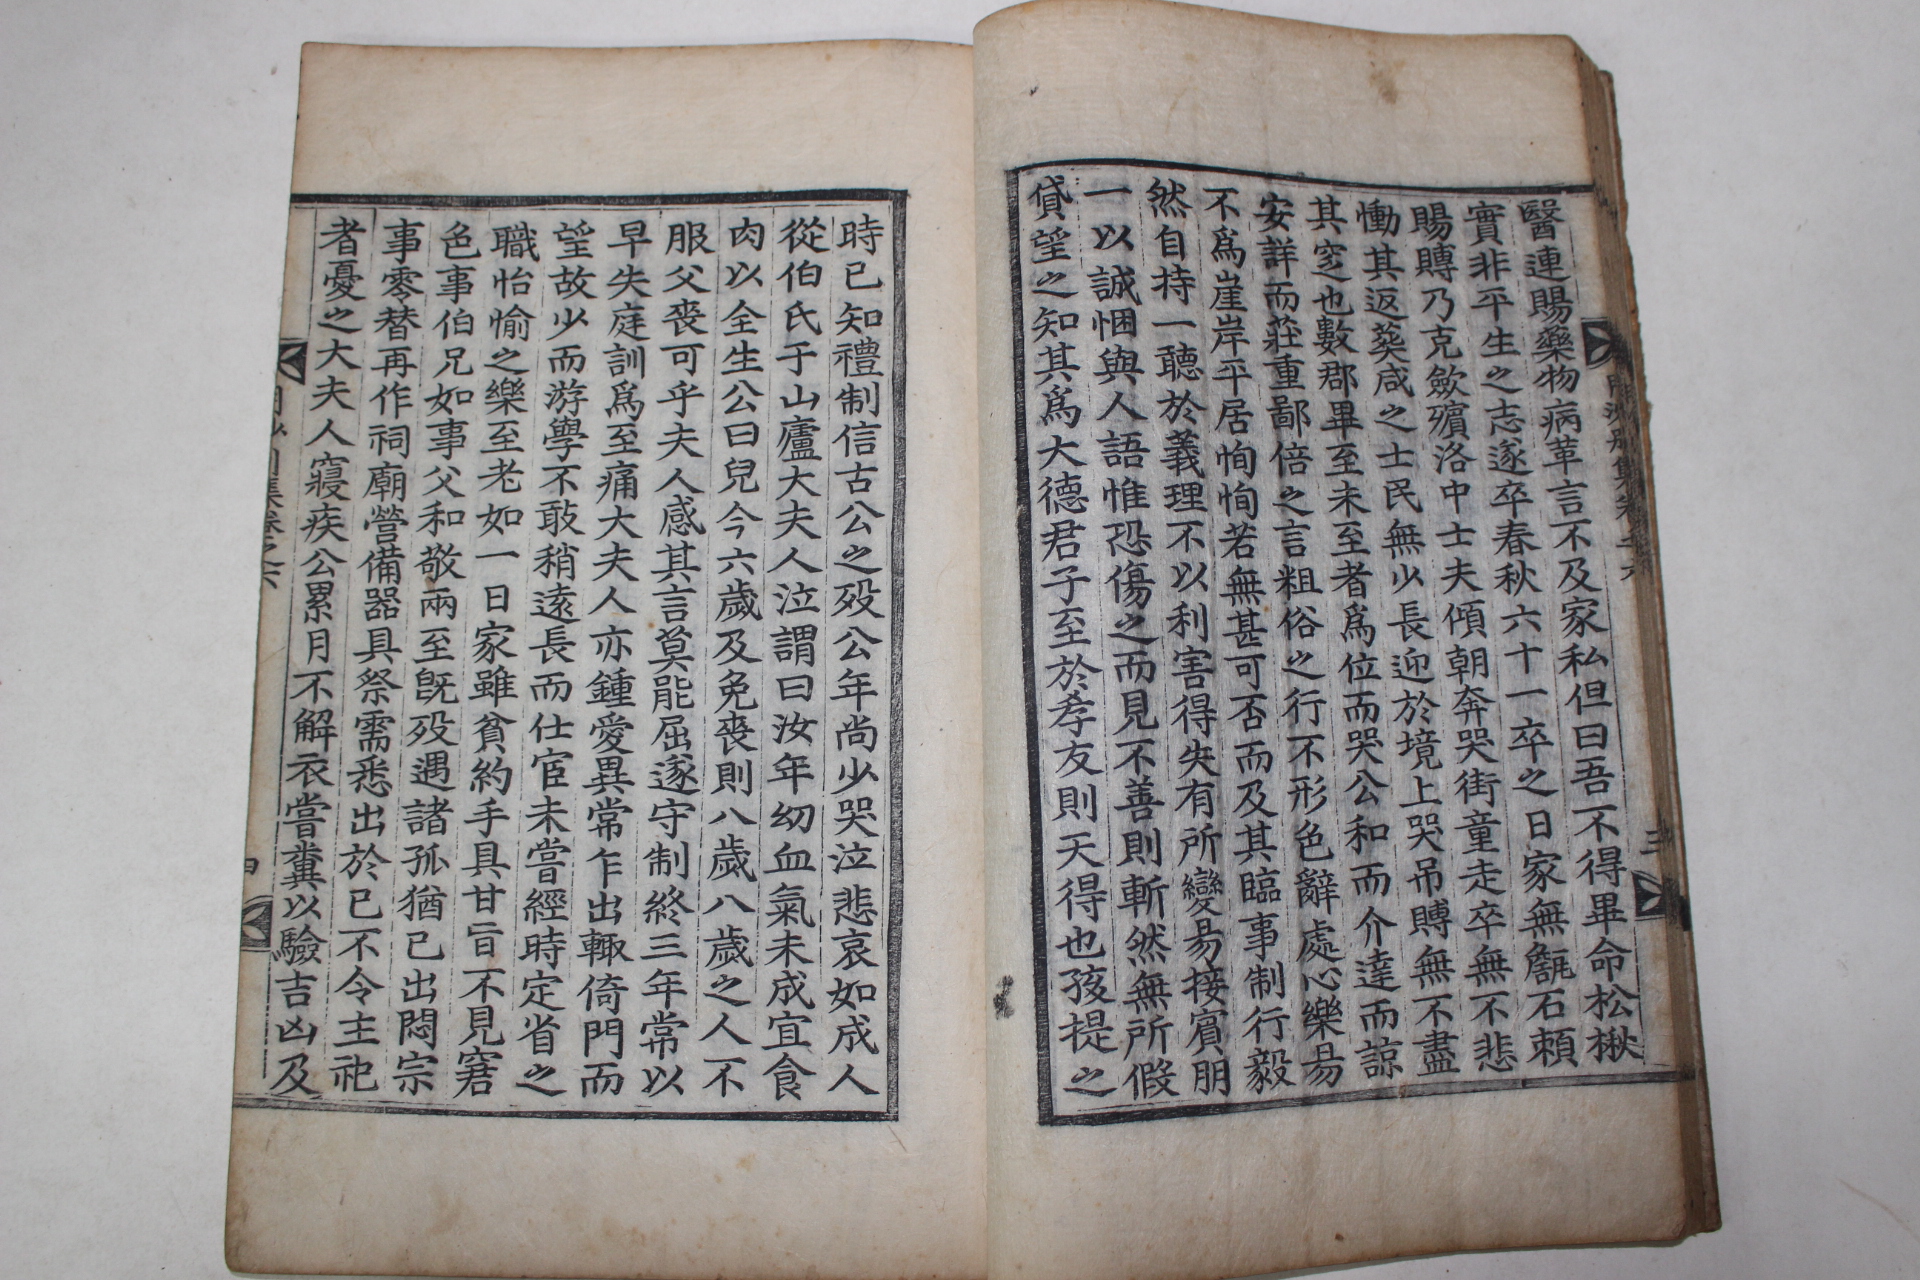 醫連賜藥物病革言不及家私但曰吾不得畢命松楸
實非平生之志遂卒春秋六十一卒之日家無甔石賴
賜賻乃克歛殯洛中士夫傾朝奔哭街童走卒無不悲
慟其返葬咸之士民無少長迎於境上哭吊賻無不盡
其窆也數郡畢至未至者爲位而哭公和而介達而諒
安詳而莊重鄙倍之言粗俗之行不形色辭處心樂易
不爲崖岸平居恂恂若無甚可否而及其臨事制行毅
然自持一聽於義理不以利害得失有所變易接賓朋
一以誠悃與人語惟恐傷之而見不善則斬然無所假
貸望之知其爲大德君子至於孝友則天得也孩提之
時已知禮制信古公之歿公年尚少哭泣悲哀如成人
從伯氏于山廬大夫人泣謂曰汝年幼血氣未成宜食
肉以全生公曰兒今六歲及免喪則八歲八歲之人不
服父喪可乎夫人感其言莫能屈遂守制終三年常以
早失庭訓爲至痛大夫人亦鍾愛異常乍出輙倚門而
望故少而游學不敢稍遠長而仕宦未嘗經時定省之
職怡愉之樂至老如一日家雖貧約手具甘旨不見窘
色事伯兄如事父和敬兩至旣歿遇諸孤猶己出悶宗
事零替再作祠廟營備器具祭需悉出於己不令主祀
者憂之大夫人寢疾公累月不解衣嘗糞以驗吉凶及